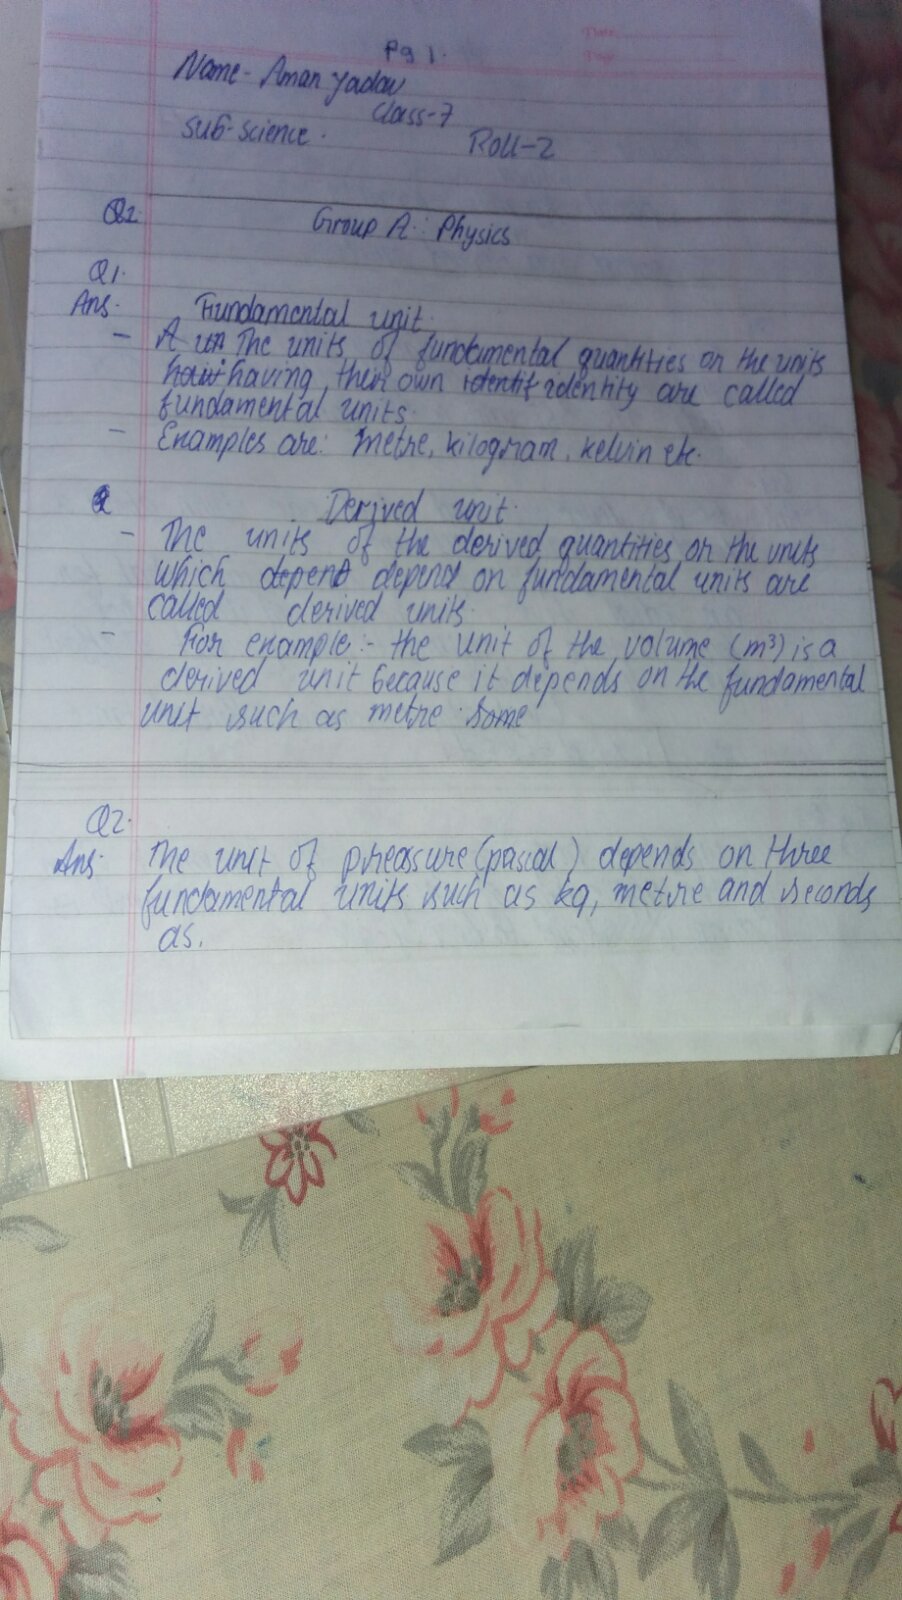 Pg 1.
Name- Aman Yadav
Class-7
Sub-science.
Roll-2
Group A: Physics
Q1.
Ans. Fundamental unit.
- The units of fundamental quantities or the units
having their own identity are called
fundamental units.
- Examples are: Metre, kilogram, kelvin etc.
Derived unit.
- The units of the derived quantities or the units
which depend on fundamental units are
called derived units.
- For example:- the unit of the volume (m³) is a
derived unit because it depends on the fundamental
unit such as metre. Some
Q2.
Ans. The unit of preassure (pascal) depends on three
fundamental units such as kg, metre and seconds
as.